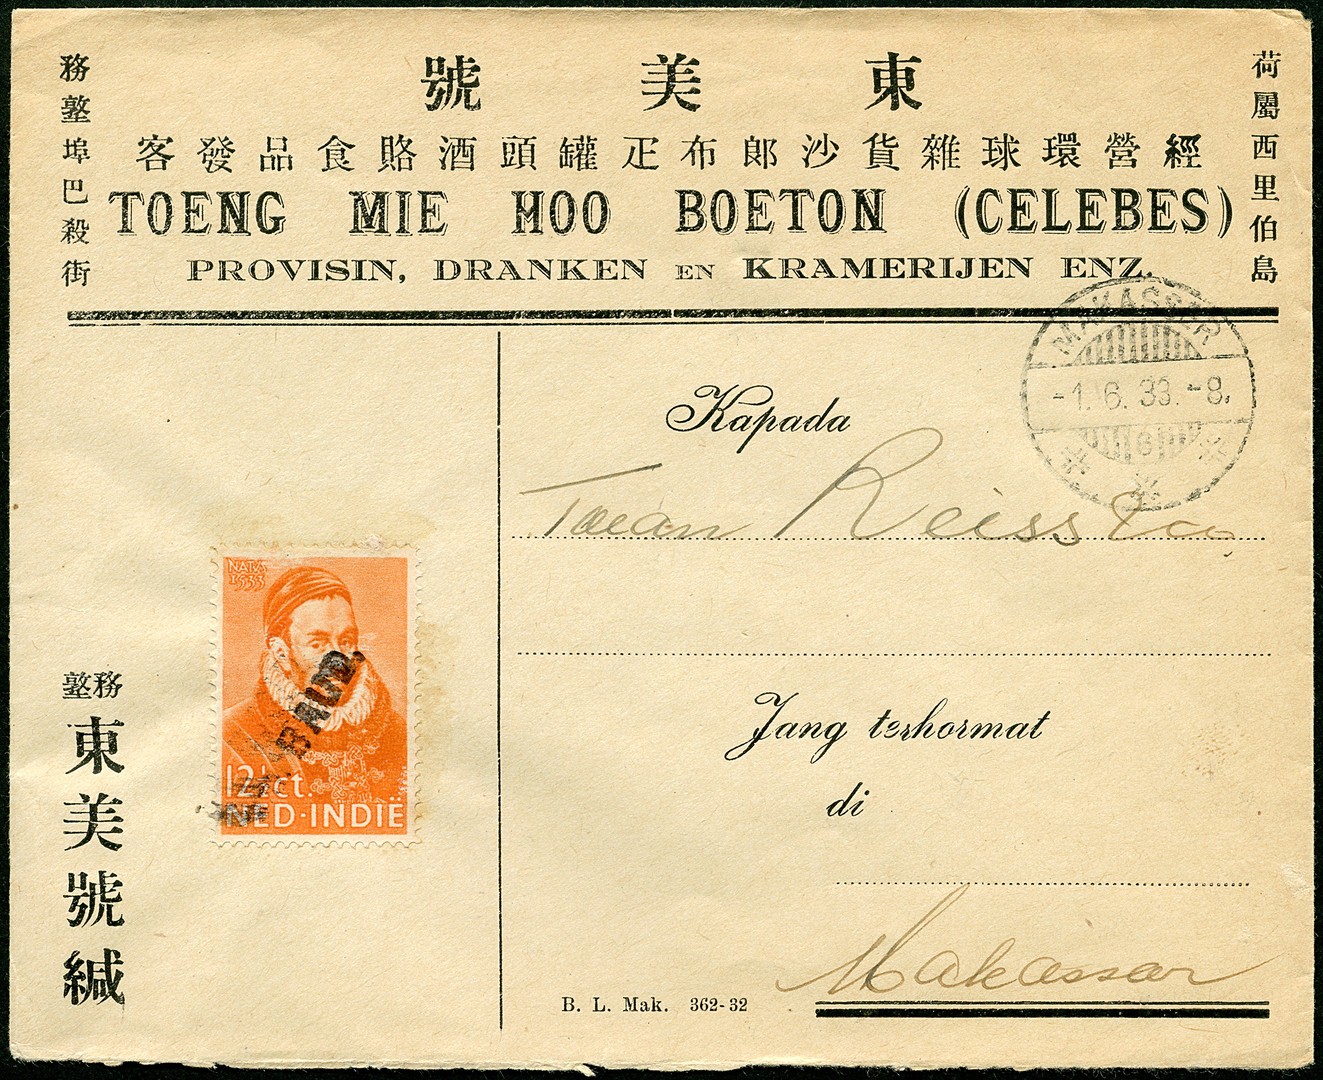 東美號
經營環球雜貨沙郎布疋罐頭酒賂食品發客
荷屬西里伯島
務塰埠巴殺街
TOENG MIE HOO BOETON (CELEBES)
PROVISIN, DRANKEN EN KRAMERIJEN ENZ.
MAKASSER
-1.6.33.-8.
6
Kapada
Toean Reiss & Co
NATA
1533
12½ct.
NED·INDIË
Jang terhormat
di
Makassar
務塰
東美號緘
B. L. Mak. 362-32